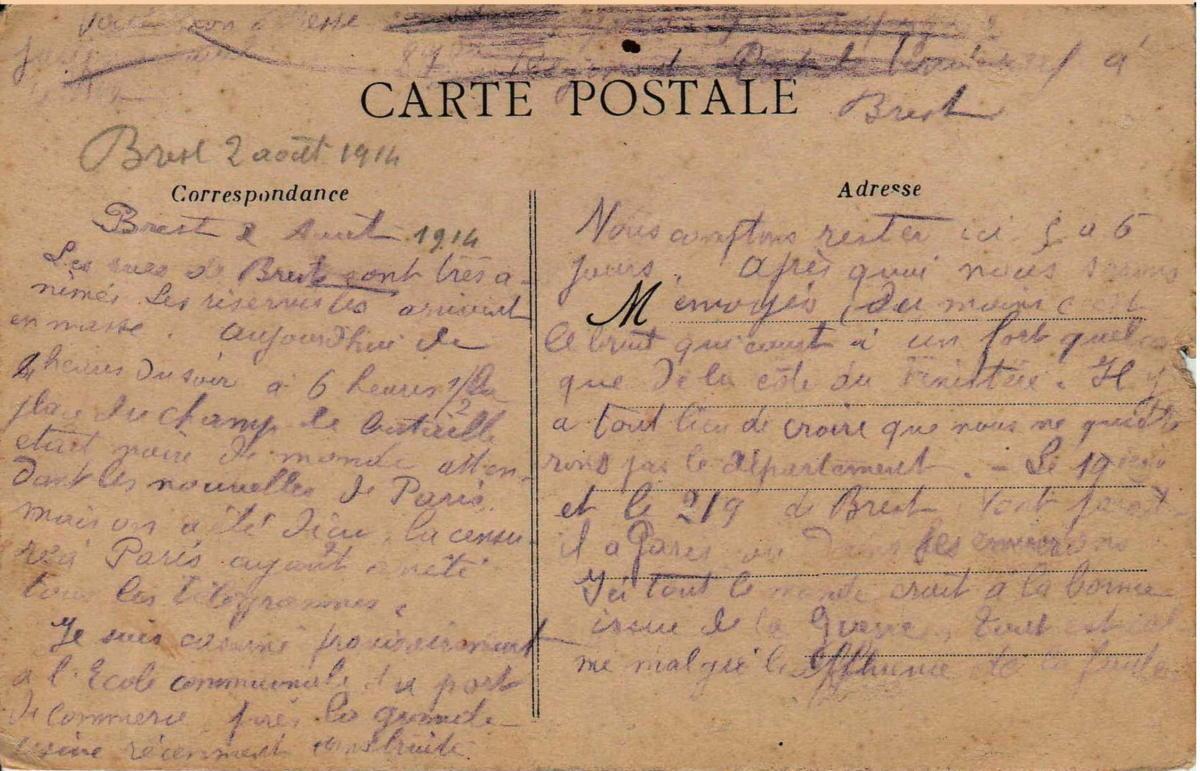 à
87
CARTE POSTALE
Brest
Brest 2 août 1914
Correspondance
Brest 2 Aout 1914
Les rues de Brest sont très a-
nimés. Les réservistes arrivent
en masse. Aujourd'hui de
heures du soir à 6 heures 1/2 la
place du champ de bataille
etait noire de monde atten-
dant les nouvelles de Paris
mais on a été déçu, la censu-
re à Paris ayant arrêté
tous les télégrammes.
Je suis caserné provisoirement
a l'Ecole communale du port
de commerce près la grande
usine récemment construite.
Adresse
Nous comptons rester ici 5 a 6
jours. Après quoi nous serons
envoyés (du moins c'est
le bruit qui court à un fort quel-
que de la côte du Finistère. Il y
a tout lieu de croire que nous ne quitte
rons pas le département. - Le 19
et le 219 de Brest vont parait-
il a Paris ou dans les environs
Ici tout le monde croit à la bonne
issue de la Guerre, tout est cal
me malgré l'affluence de la foule